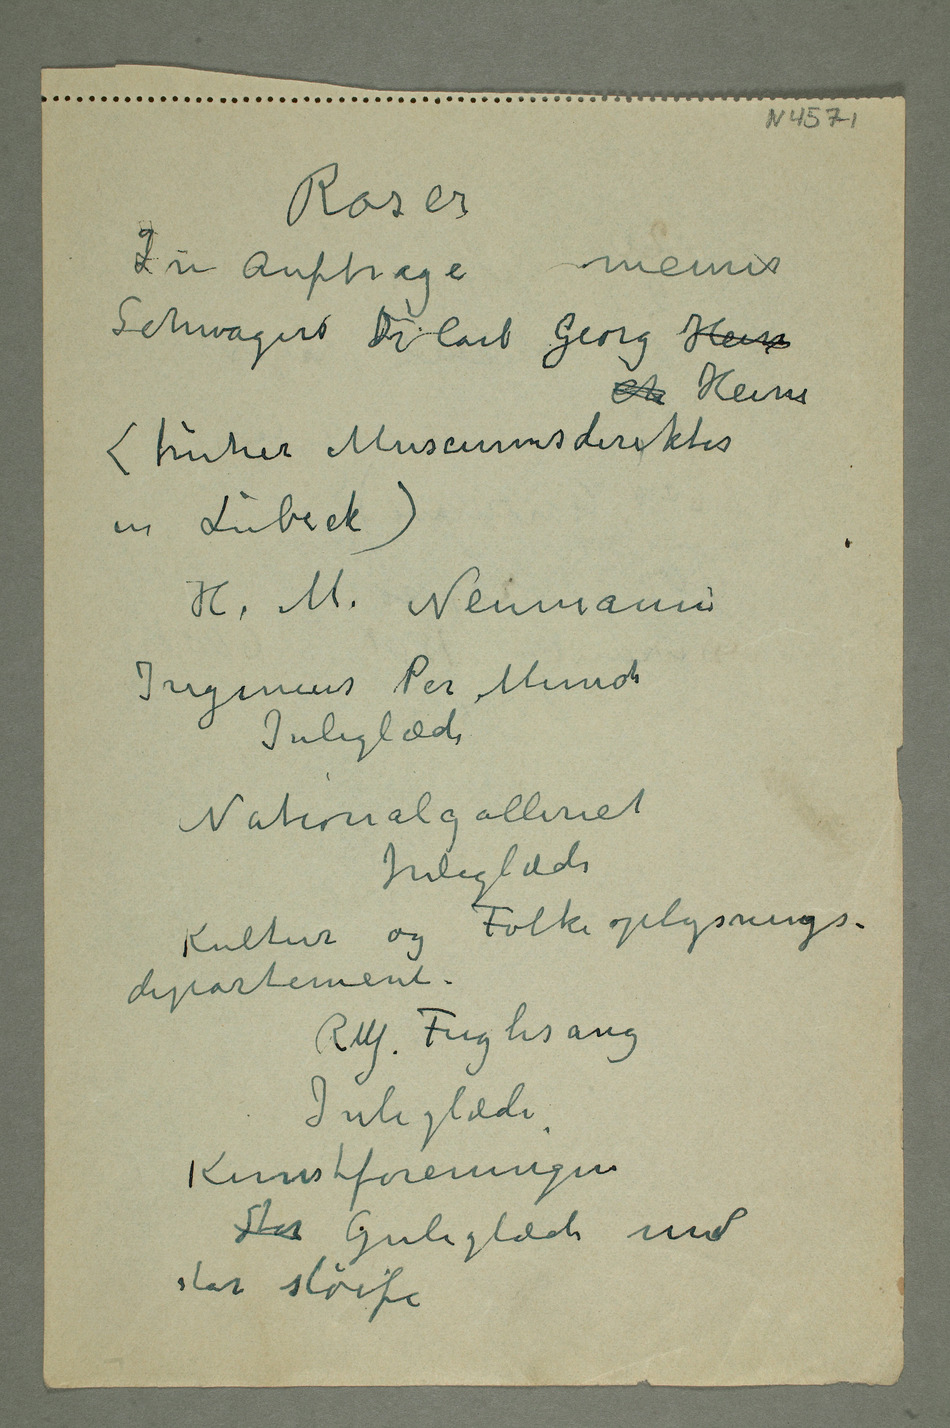 N 4571
Roser
In Auftrage meines
Schwagers Dr Carl Georg Hein
Heine
(früher Museumsdirektor
in Lübeck)
H. M. Neumann
Ingeniør Per Munch
Juleglæde
Nationalgalleriet
Juleglæde
Kultur og Folkeoplysnings-
departement.
Rolf. Fuglesang
Juleglæde
Kunstforeningen
Stor Juleglæde med
stor sløife